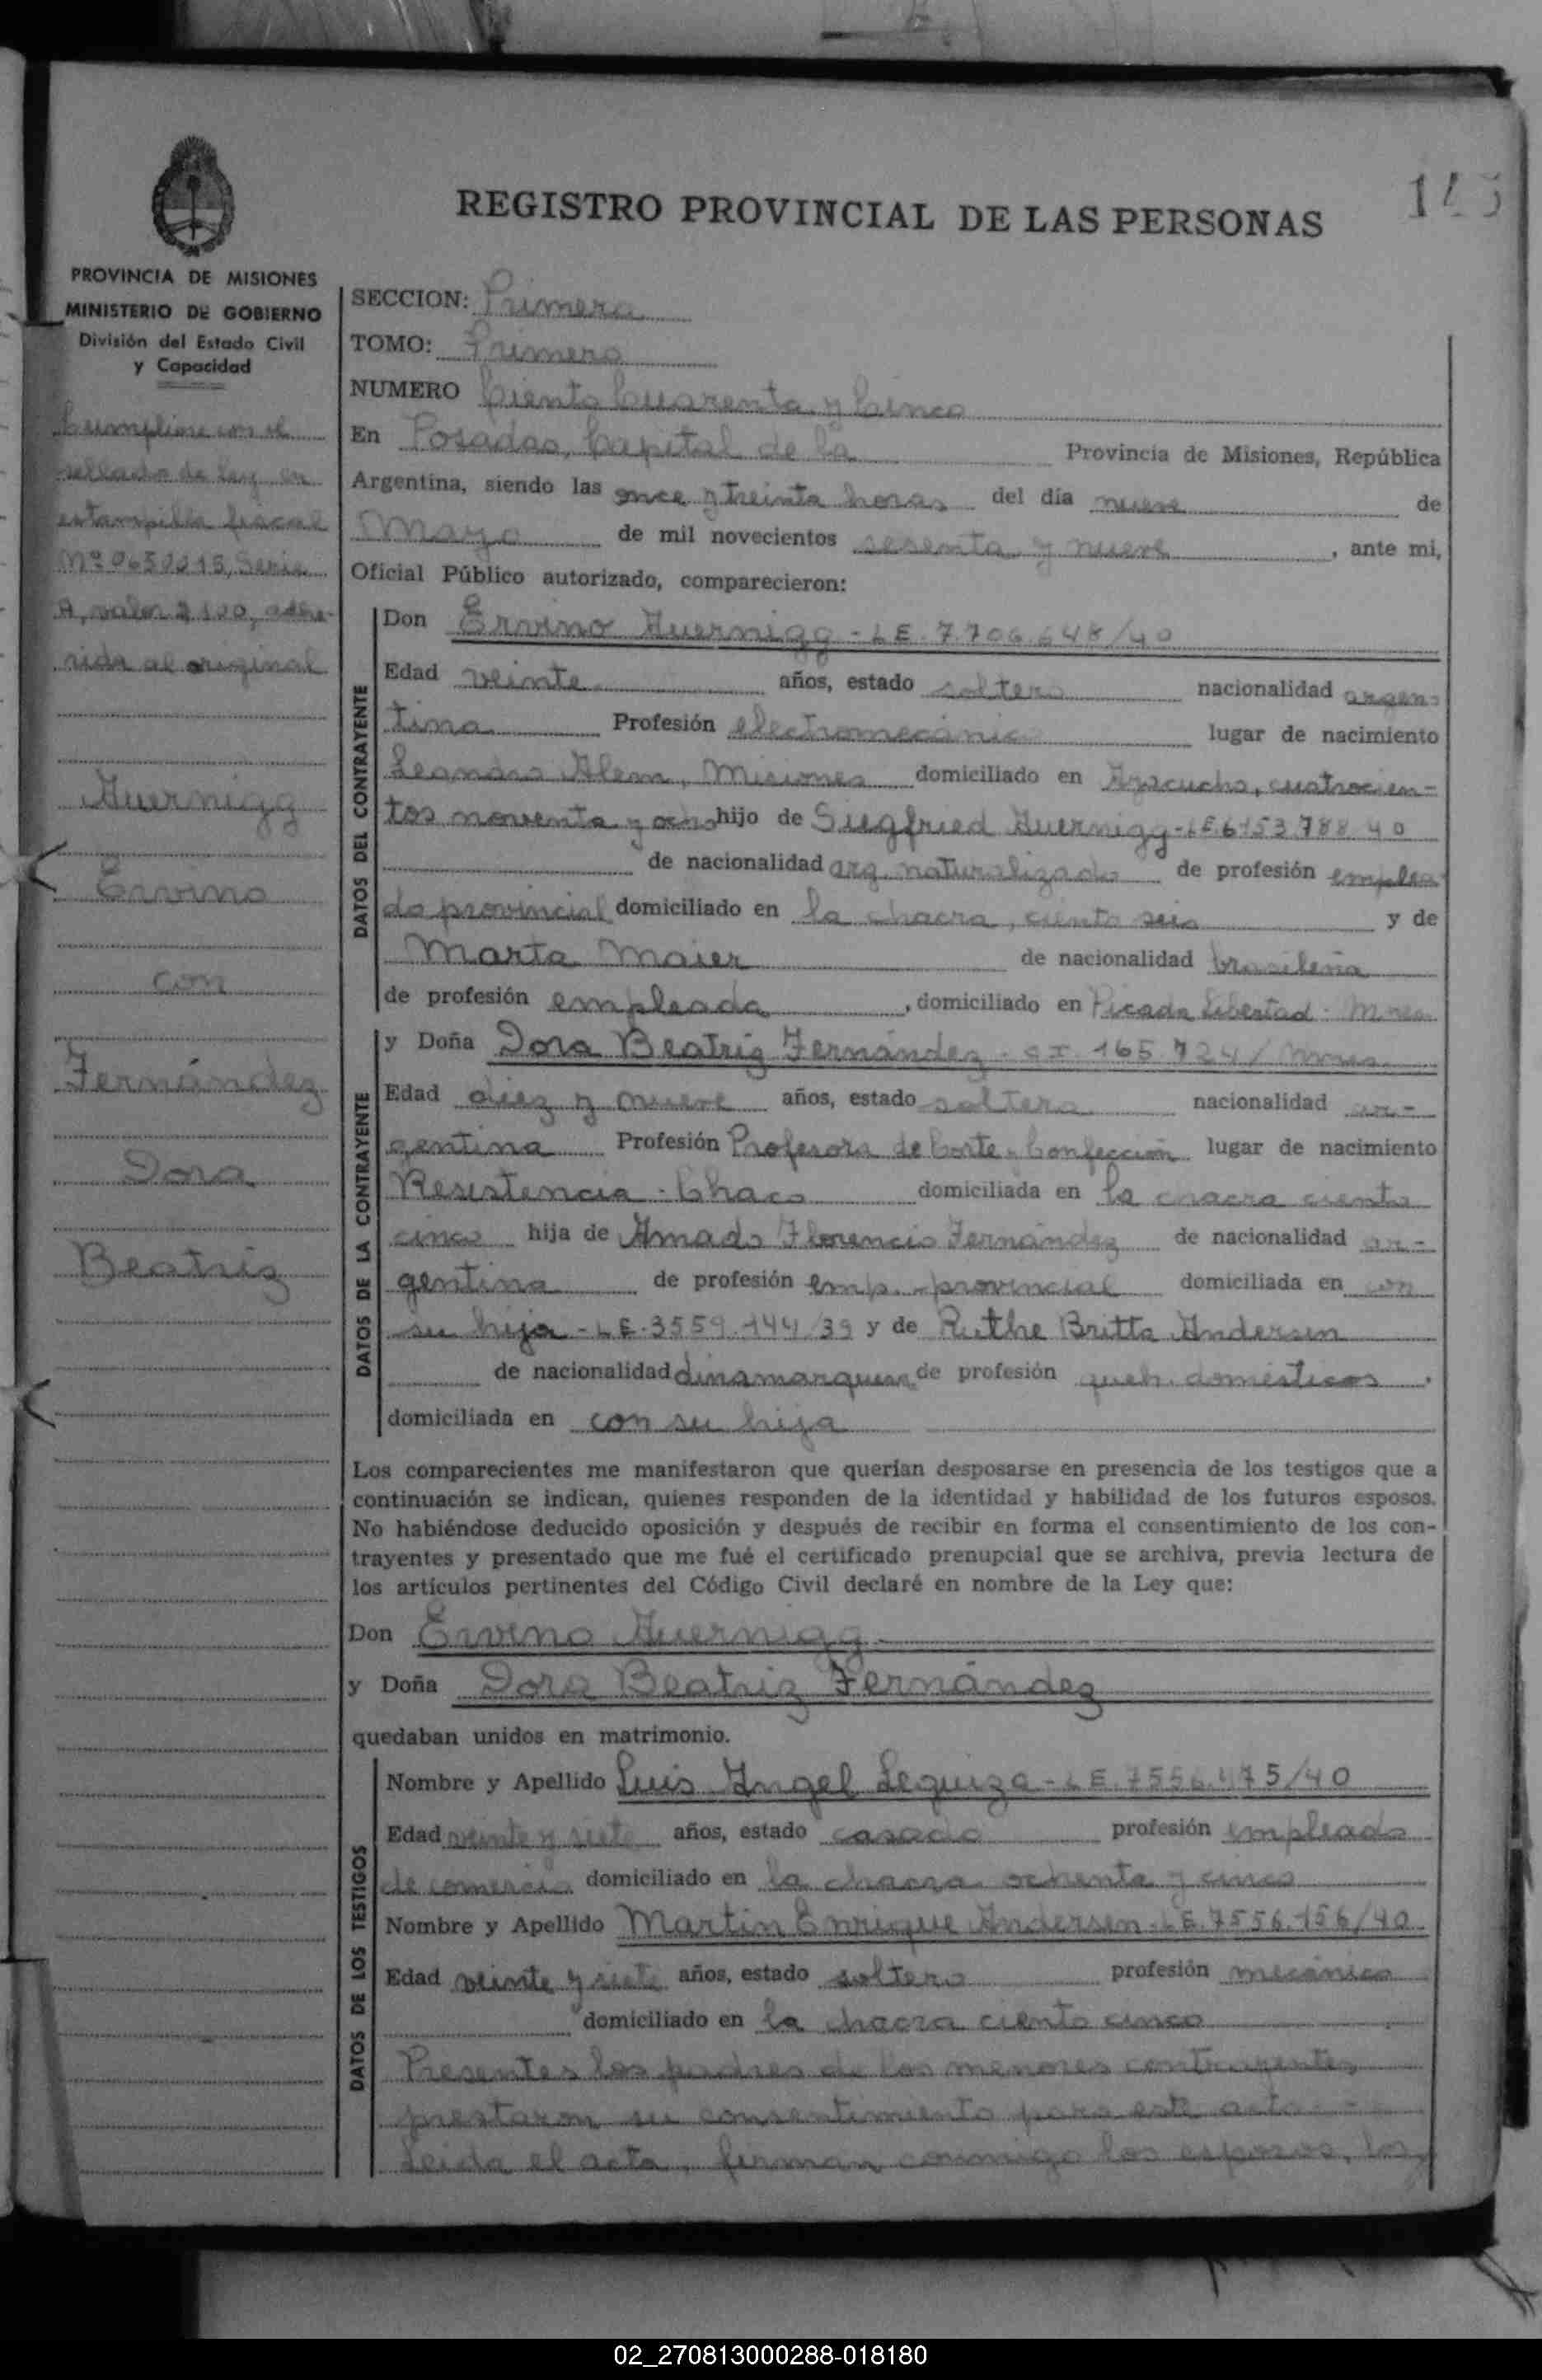 145
REGISTRO PROVINCIAL DE LAS PERSONAS
PROVINCIA DE MISIONES
MINISTERIO DE GOBIERNO
División del Estado Civil
y Capacidad
Cumplióse con el
sellado de ley en
estampilla fiscal
Nº 0650015, Serie
A, valor $ 100, adhe-
rida al original
Huernigg
Ervino
con
Fernández
Dora
Beatriz
SECCION: Primera
TOMO: Primero
NUMERO Ciento Cuarenta y Cinco
En Posadas, Capital de la Provincia de Misiones, República
Argentina, siendo las once y treinta horas del día nueve de
Mayo de mil novecientos sesenta y nueve, ante mi,
Oficial Público autorizado, comparecieron:
DATOS DEL CONTRAYENTE
Don Ervino Huernigg - LE. 7.706.648/40
Edad veinte años, estado soltero nacionalidad argen-
tina Profesión electromecánico lugar de nacimiento
Leandro Alem, Misiones domiciliado en Ayacucho, cuatrocien-
tos noventa y ocho hijo de Siegfried Huernigg - LE 6153.788 40
de nacionalidad arg. naturalizado de profesión emplea
do provincial domiciliado en la chacra, ciento seis y de
Marta Maier de nacionalidad brasileña
de profesión empleada, domiciliado en Picada Libertad - Mnes
DATOS DE LA CONTRAYENTE
y Doña Dora Beatriz Fernández - CI. 165.724/Mnes.
Edad diez y nueve años, estado soltera nacionalidad ar-
gentina Profesión Profesora de Corte y Confección lugar de nacimiento
Resistencia - Chaco domiciliada en la chacra ciento
cinco hija de Amado Florencio Fernández de nacionalidad ar-
gentina de profesión emp. provincial domiciliada en con
su hija - LE. 3559.144/39 y de Ruthe Britta Andersen
de nacionalidad dinamarquesa de profesión queh. domésticos.
domiciliada en con su hija
Los comparecientes me manifestaron que querían desposarse en presencia de los testigos que a
continuación se indican, quienes responden de la identidad y habilidad de los futuros esposos.
No habiéndose deducido oposición y después de recibir en forma el consentimiento de los con-
trayentes y presentado que me fué el certificado prenupcial que se archiva, previa lectura de
los artículos pertinentes del Código Civil declaré en nombre de la Ley que:
Don Ervino Huernigg
y Doña Dora Beatriz Fernández
quedaban unidos en matrimonio.
DATOS DE LOS TESTIGOS
Nombre y Apellido Luis Angel Leguiza - LE. 7556.475/40
Edad veinte y siete años, estado casado profesión empleado
de comercio domiciliado en la chacra ochenta y cinco
Nombre y Apellido Martin Enrique Andersen - LE. 7556.156/40
Edad veinte y siete años, estado soltero profesión mecánico
domiciliado en la chacra ciento cinco
Presentes los padres de los menores contrayentes,
prestaron su consentimiento para este acto.
Leida el acta, firman conmigo los esposos, los
02_270813000288-018180